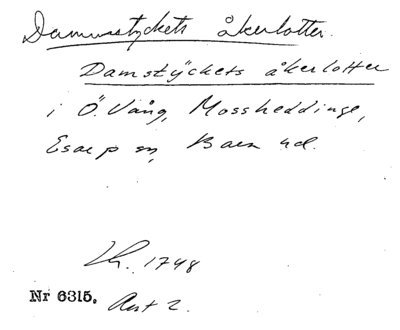 Dammstyckets åkerlotter.
Damstÿckets åkerlotter
i Ö. Vång, Mossheddinge,
Esarp sn, Bara hd.
Lh. 1748
Nr 6315. Akt 2.